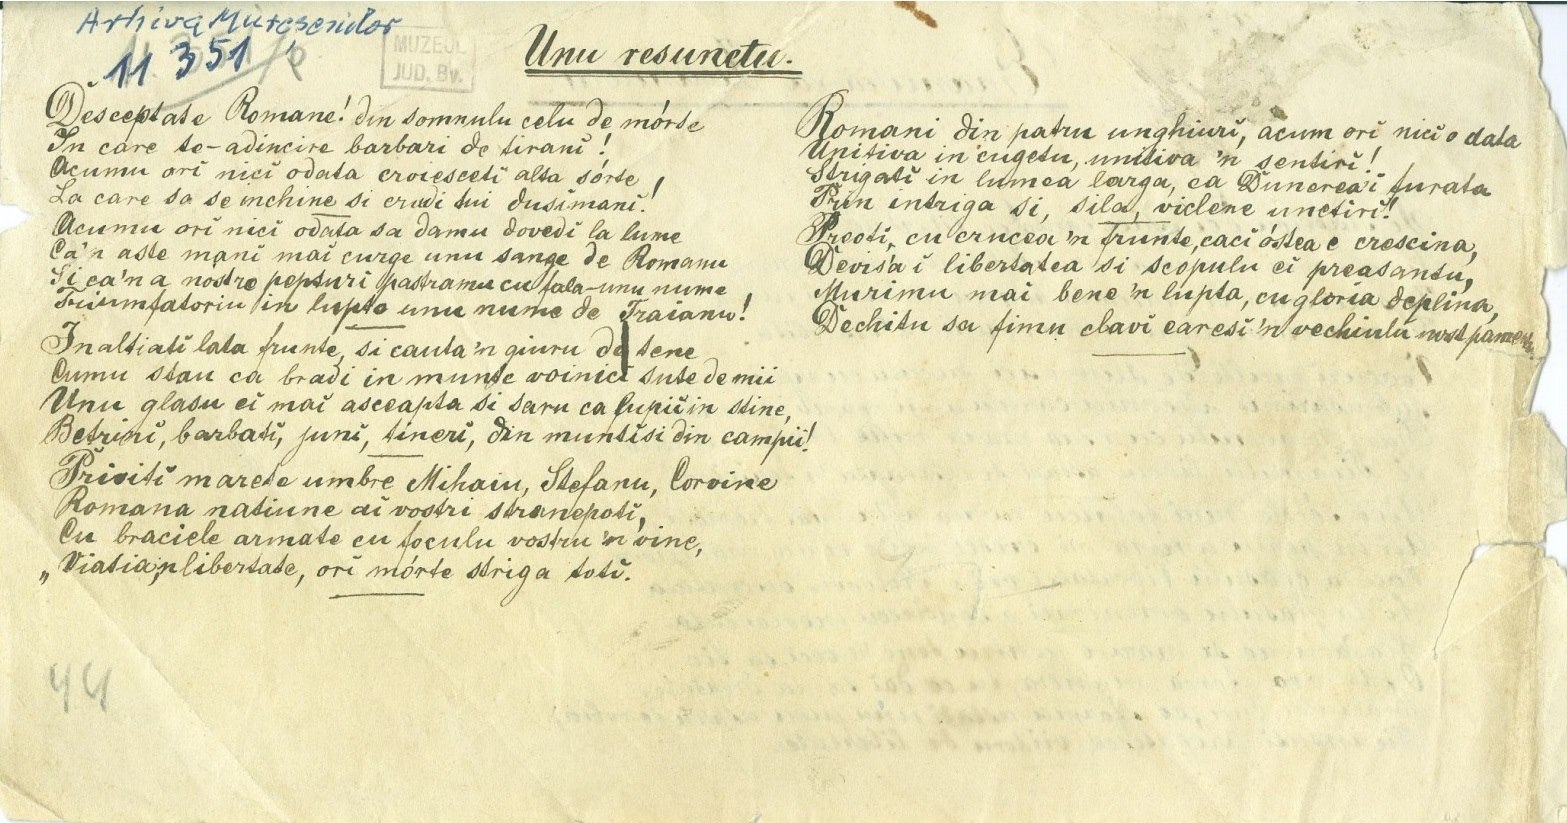 Arhiva Mureșenilor
11 351
MUZEUL
JUD. Bv.
Unu resunetu.
Desceptate Romane! din somnulu celu de mórte
In care te-adincire barbari de tirani!
Acumu ori nici odata croiesceti alta sórte
La care sa se inchine si crudi tui dusimani!
Acumu ori nici odata sa damu dovedi la lume
Ca'n aste mani mai curge unu sange de Romanu
Si ca'n a nostre pepturi pastramu cu fala-unu nume
Triumfatoriu in lupte unu nume de Traianu!
Inaltiati lata frunte, si cauta'n giuru de tene
Cumu stau ca bradi in munte voinici sute de mii
Unu glasu ei mai asceapta si saru ca lupii in stine,
Betrini, barbati, juni, tineri, din muntisi din campii!
Priviti marete umbre Mihaiu, Stefanu, Corvine
Romana natiune ai vostri stranepoti,
Cu braciele armate cu foculu vostru 'n vine,
„Viatia'n libertate, ori mórte striga toti.
44
Romani din patru unghiuri, acum ori nici o data
Unitiva in cugetu, unitiva 'n sentiri!
Strigati in lumea larga, ca Dunerea'i furata
Prin intriga si, sila, viclene unctiri!
Preoti, cu crucea 'n frunte, caci óstea e crescina,
Devisa i libertatea si scopulu ei preasantu,
Murimu mai bene 'n lupta, cu gloria deplina,
Dechitu sa fimu clavi earesi 'n vechiulu nost